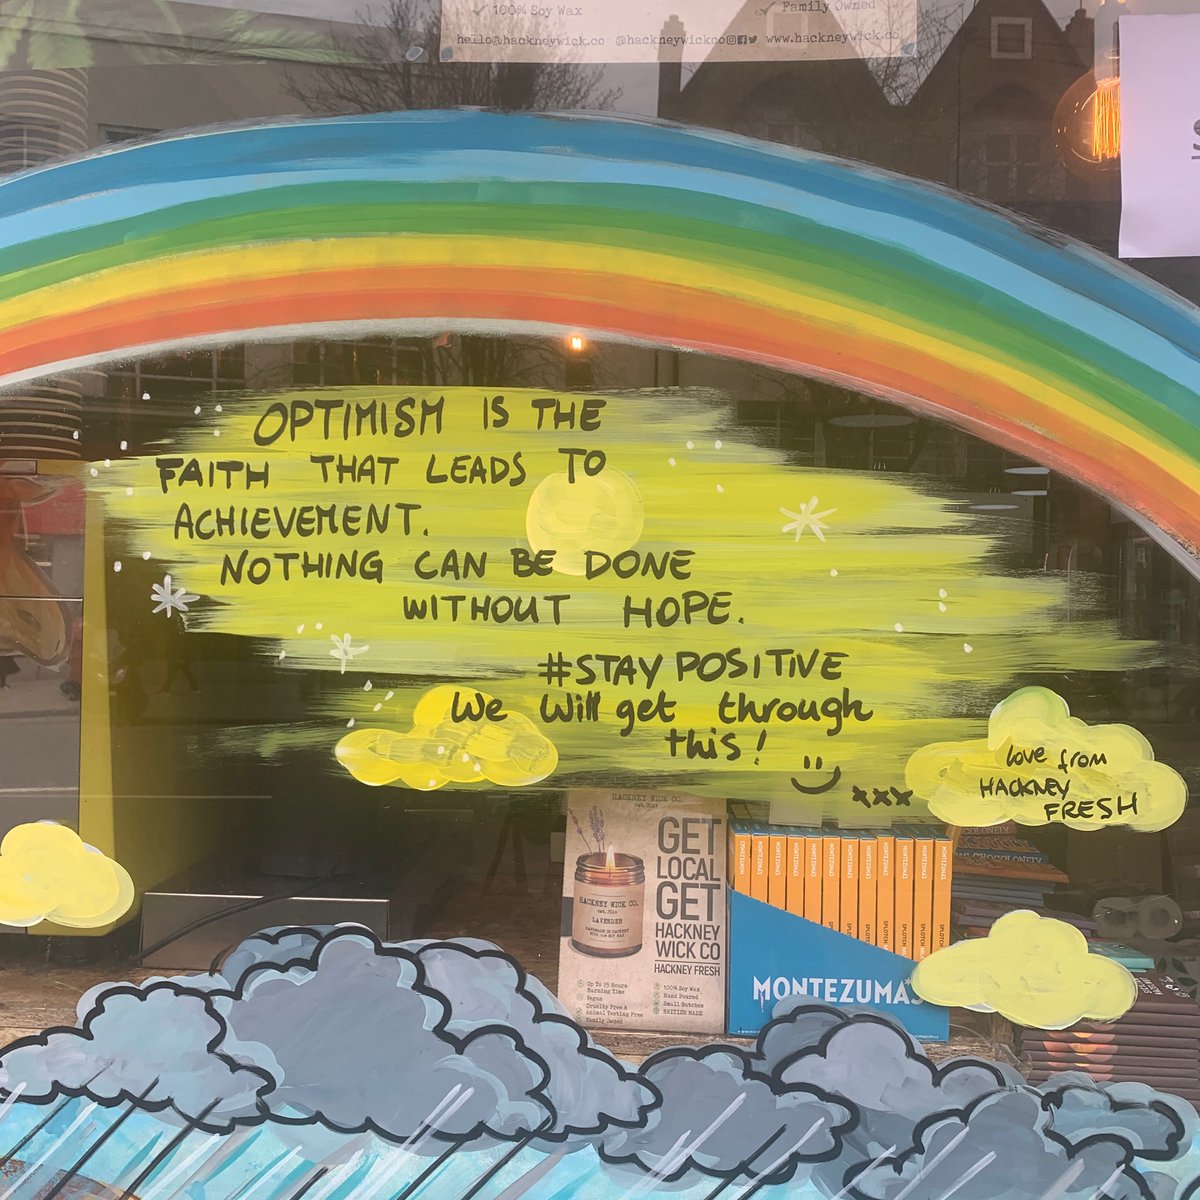 ✓ 100% Soy Wax
✓ Family Owned
hello@hackneywick.co @hackneywickco www.hackneywick.co
OPTIMISM IS THE
FAITH THAT LEADS TO
ACHIEVEMENT.
NOTHING CAN BE DONE
WITHOUT HOPE.
#STAY POSITIVE
We Will get through
this!
xxx
love from
HACKNEY
FRESH
HACKNEY WICK CO.
GET
LOCAL
GET
HACKNEY
WICK CO
HACKNEY FRESH
HACKNEY WICK CO.
LAVENDER
Up To 25 Hours
Burning Time
Vegan
Cruelty Free &
Animal Testing Free
Family Owned
100% Soy Wax
Hand Poured
Small Batches
BRITISH MADE
MONTEZUMAS
MONTEZUMAS
MONTEZUMAS
MONTEZUMAS
MONTEZUMAS
MONTEZUMAS
MONTEZUMAS
MONTEZUMAS
MONTEZUMAS
MONTEZUMAS
SPLOTCH
SPLOTCH
SPLOTCH
MONTEZUMAS